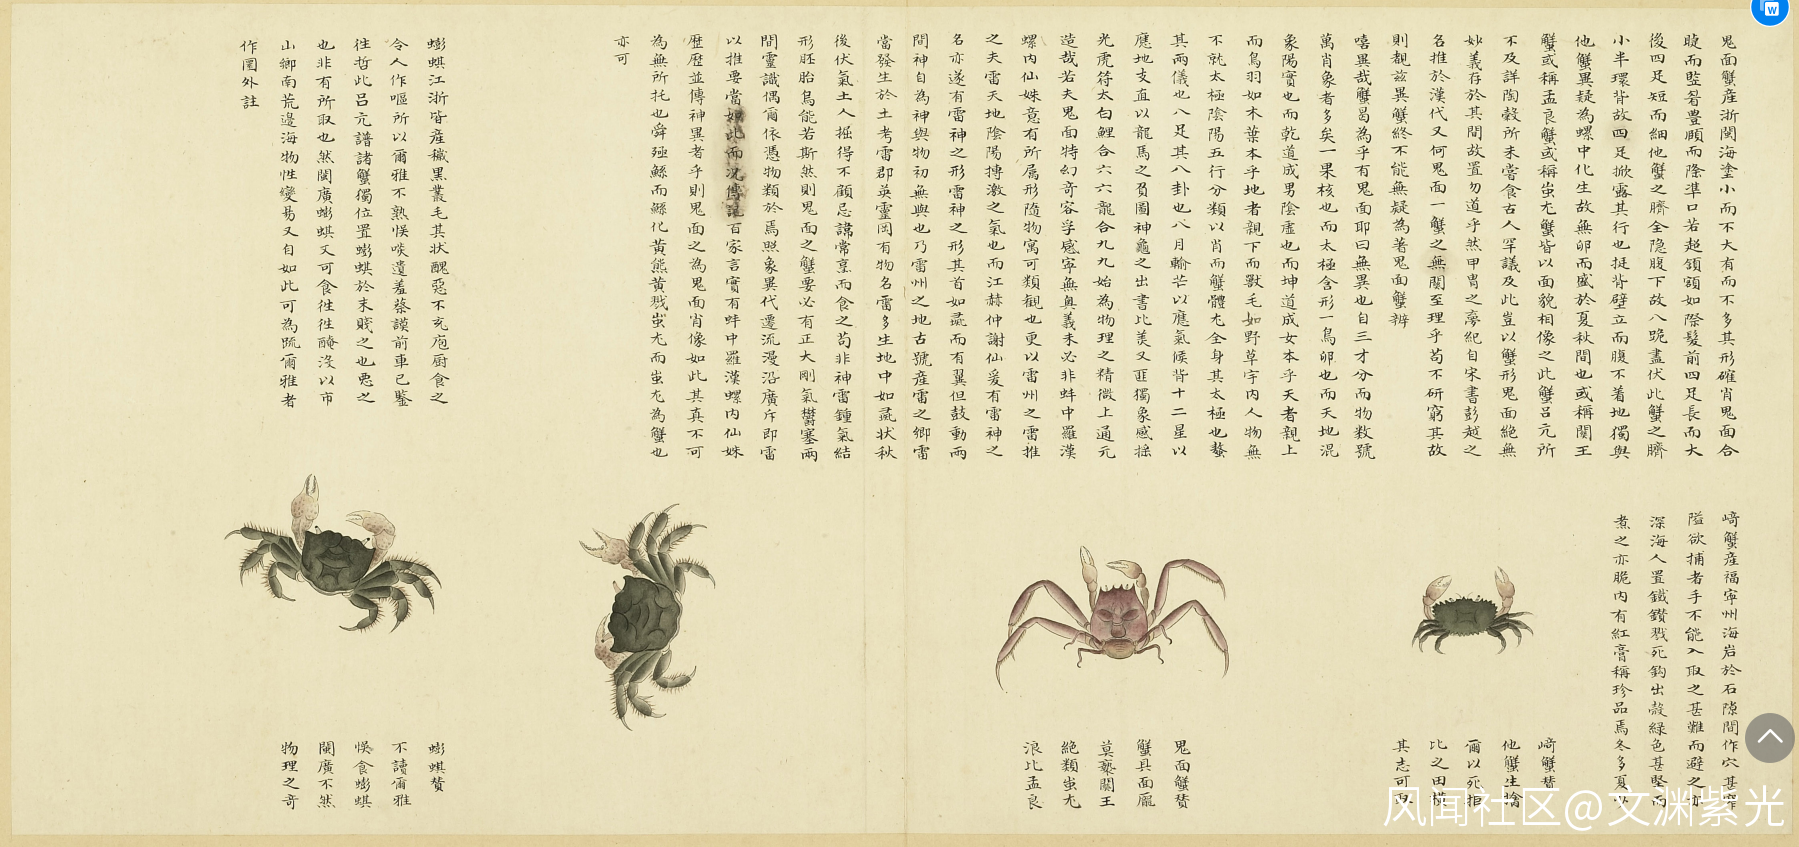 鬼面蟹產浙閩海塗小而不大有而不多其形確肖鬼面合
睫而豎眉豐頤而隆準口若超頷額如際髮前四足長而大
後四足短而細他蟹之臍全隐腹下故八跪盡伏此蟹之臍
小半環背故四足掀露其行也挺背壁立而腹不着地獨與
他蟹異疑為螺中化生故無卵而盛於夏秋間也或稱関王
蟹或稱孟良蟹或稱蚩尤蟹皆以面貌相像之此蟹吕亢所
不及詳陶穀所未嘗食古人罕議及此豈以蟹形鬼面絶無
妙義存於其間故置勿道乎然甲冑之夢紀自宋書彭越之
名推於漢代又何鬼面一蟹之無關至理乎苟不研窮其故
則覩兹異蟹終不能無疑為著鬼面蟹辨
嘻異哉蟹曷為乎有鬼面耶曰無異也自三才分而物数號
萬肖象者多矣一果核也而太極含形一鳥卵也而天地混
象陽實也而乾道成男陰虛也而坤道成女本乎天者親上
而鳥羽如木葉本乎地者親下而獸毛如野草宇内人物無
不就太極陰陽五行分類以肖而蟹體尤全身其太極也螯
其兩儀也八足其八卦也八月輸芒以應氣候背十二星以
應地支直以龍馬之負圖神龜之出書比美又匪獨象感
光虎符太白鯉合六六龍合九九始為物理之精微上通元
造哉若夫鬼面特幻奇容孚感寧無奥義未必非蚌中羅漢
螺内仙姝意有所属形隨物寓可類觀也更以雷州之雷推
之夫雷天地陰陽摶激之氣也而江赫仲謝仙爰有雷神之
名亦遂有雷神之形雷神之形其首如彘而有翼但鼓動兩
間神自為神與物初無與也乃雷州之地古號産雷之鄉雷
當發生於土考雷郡英靈岡有物名雷多生地中如彘狀秋
後伏氣土人掘得不顧忌諱常烹而食之苟非神雷鍾氣結
形胚胎烏能若斯然則鬼面之蟹要必有正大剛氣欝塞兩
間靈識偶爾依憑物類於焉照象異代遷流漫沿廣斥即雷
以推要當如此而況傳記百家言實有蚌中羅漢螺内仙姝
歷歷並傳神異者乎則鬼面之為鬼面肖像如此其真不可
為無所托也舜殛鯀而鯀化黄熊黄戮蚩尤而蚩尤為蟹也
亦可
蟛蜞江浙皆産穢黒叢毛其狀醜惡不充庖厨食之
令人作嘔所以爾雅不熟悞啖遺羞蔡謨前車已鑒
徃哲此吕亢譜諸蟹獨位置蟛蜞於末賤之也悪之
也非有所取也然閩廣蟛蜞又可食徃徃醃沒以市
山鄉南荒邉海物性變易又自如此可為䟽爾雅者
作圖外註
崎蟹産福寧州海岩於石隙間作穴甚窄
隘欲捕者手不能入取之甚難而避之亦
深海人置鐵鑚戮死鈎出殼緑色甚堅而
煮之亦脆内有紅膏稱珍品焉冬多夏少
崎蟹賛
他蟹生擒
爾以死拒
比之田横
其志可取
鬼面蟹賛
蟹具面龎
莫褻關王
絶類蚩尤
浪比孟良
蟛蜞賛
不讀爾雅
悞食蟛蜞
閩廣不然
物理之奇
風闻社区@文渊紫光